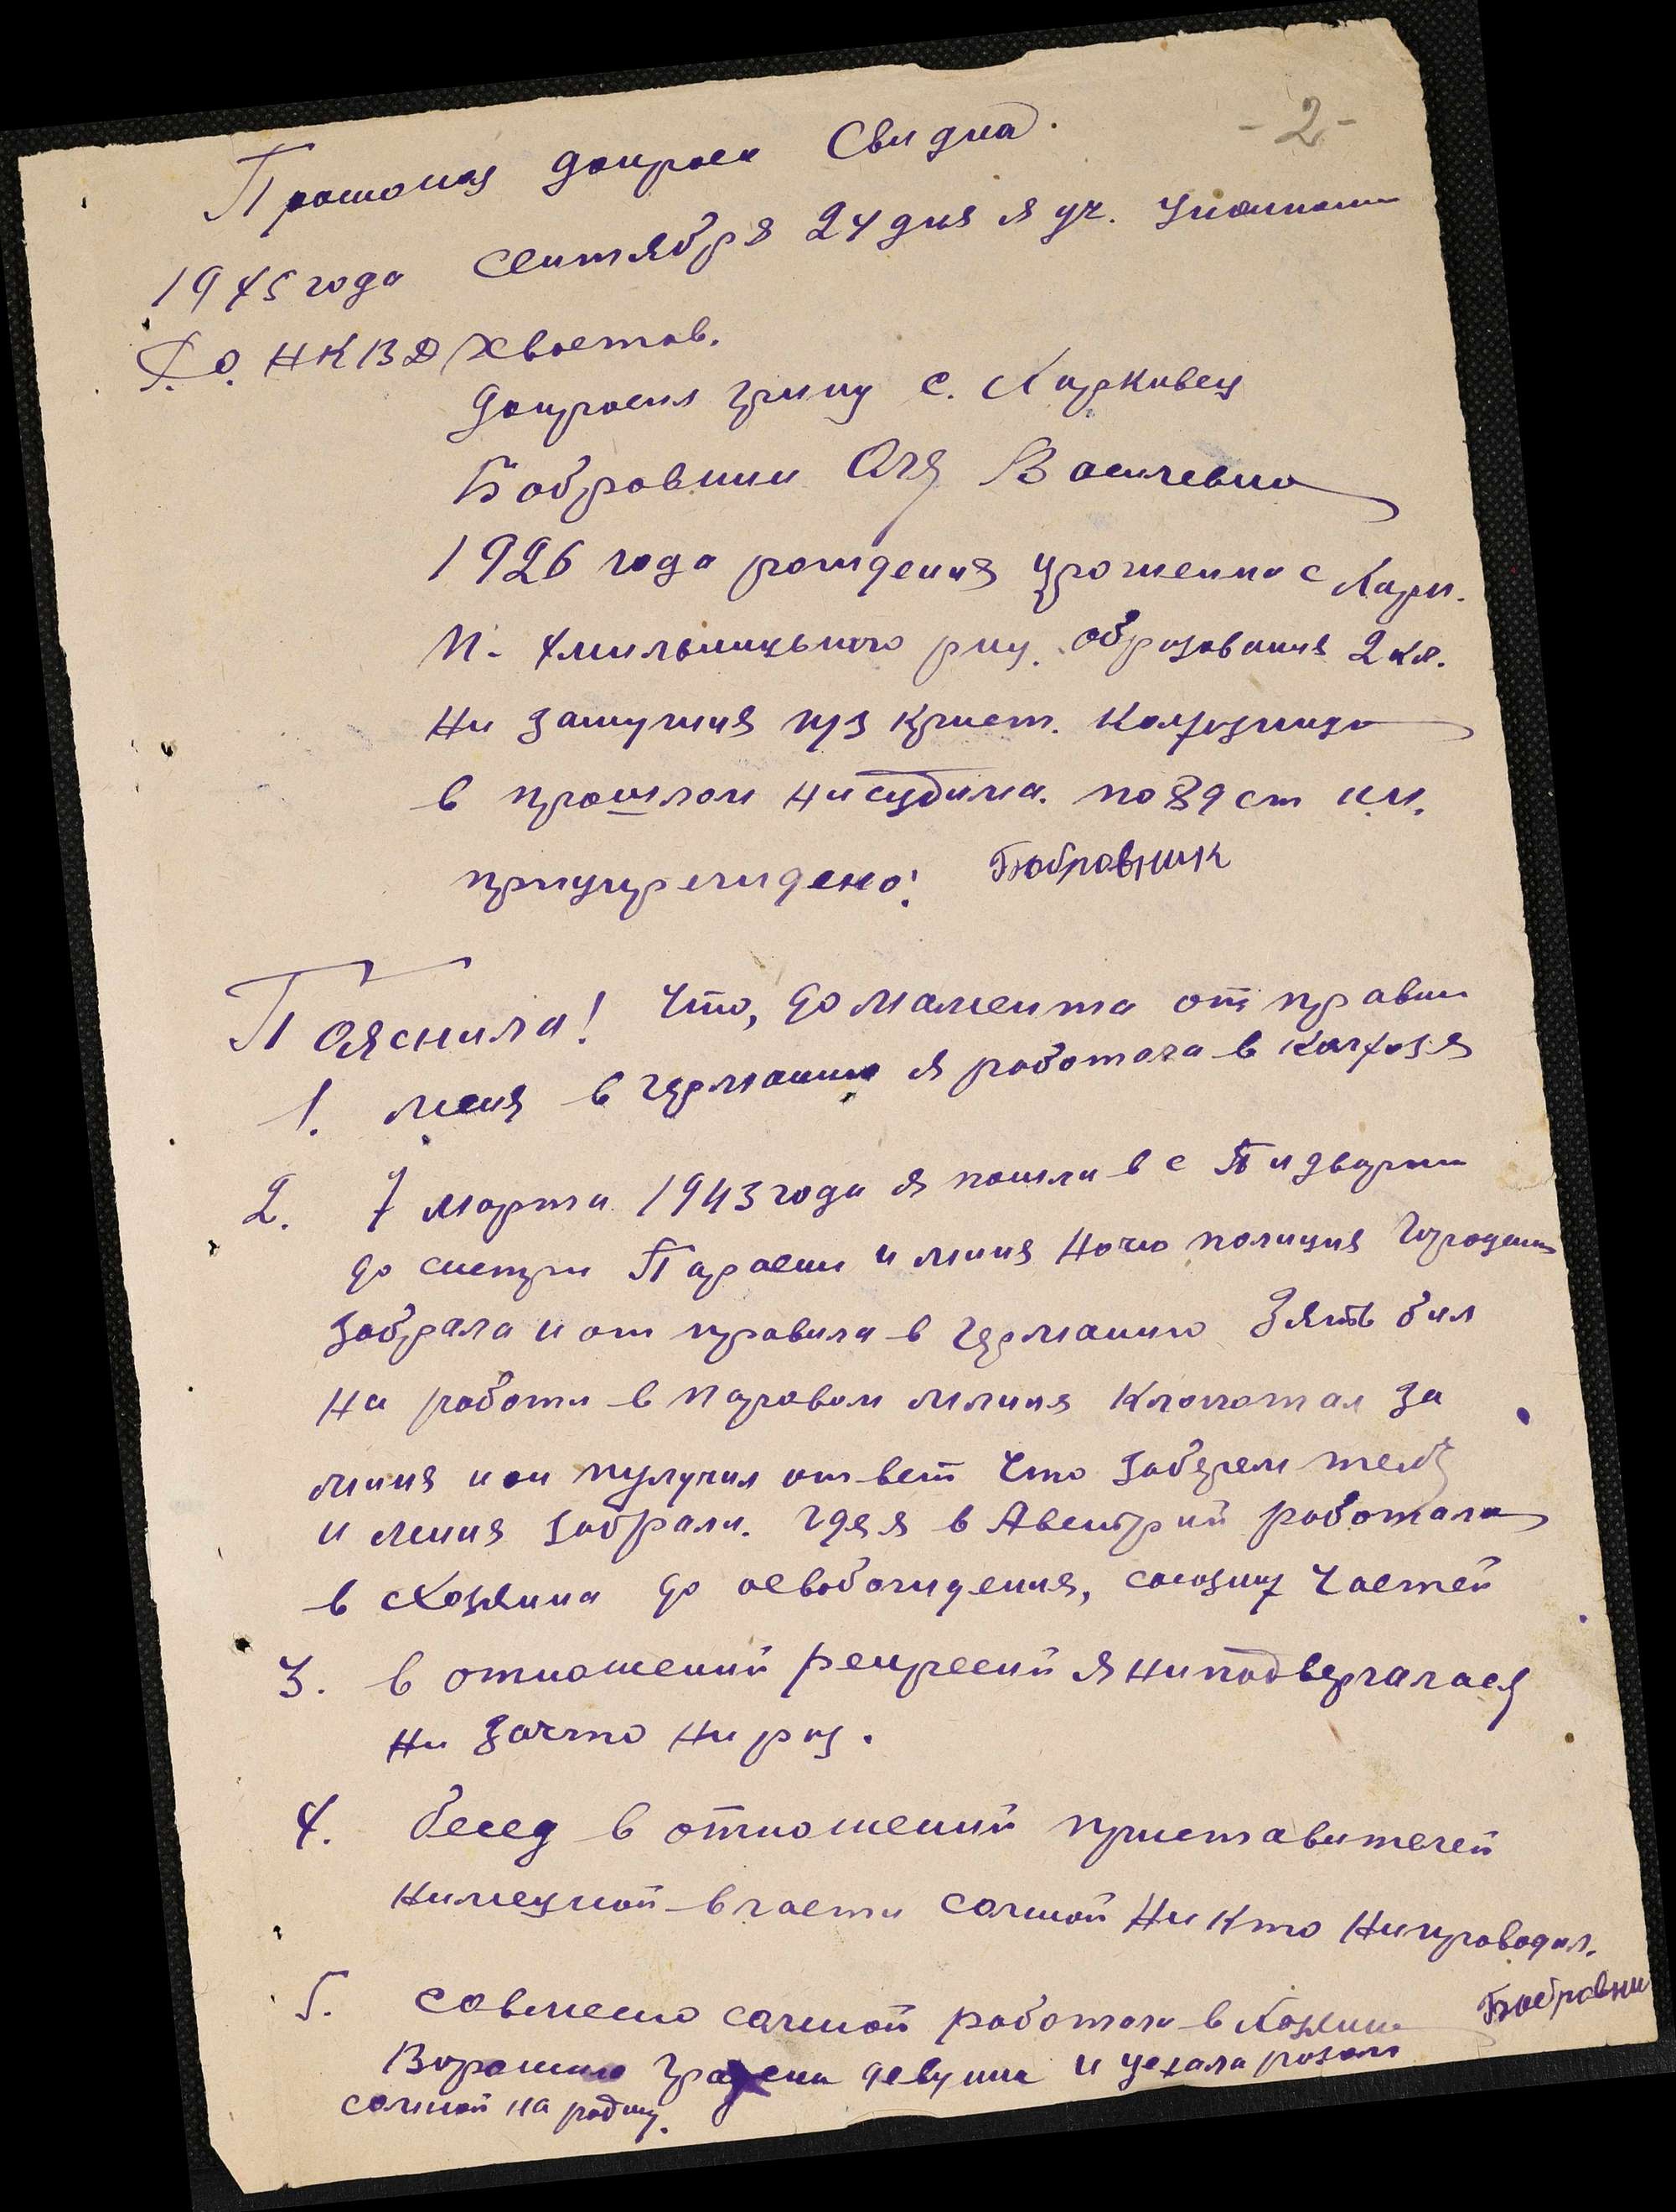 -2-
Протокол допроса Свидка.
1945 года Сентября 24 дня я уч. уполном
Р.О. НКВД Хвостов.
допросил грику с. Карковец
Бобровник Оля Василевно
1926 года рождения уроженка с Карк.
Хмильницького рну. образования 2 кл.
Ни замужняя из крист. Колхозница
в прошлом нисудима. по 89 ст
придупреждено: Бобровник
Пояснила! Что, до мамента от правки
1. меня в Германию я работала в колхозя
2. 7 марта 1943 года я пошла в с Пидварки
до систри Параски и миня ночю полиция
забрала и от правила в Германию Зять бил
на работи в паравом млиня клопотал за
миня и он пулучил ответ что заберем тебя
и миня забрали. где я в Австрий работала
в схозяина до освобождения, союзних частей
3. в отношений репресий я ниподвергалася
ни зачто ни раз.
4. бесед в отношений приставителей
нимецкой власти сомной Ни кто нипроводил.
Бобровни
5. совмесно сомной работала в Хозяина
девушка и уехала разом
сомной на родину.